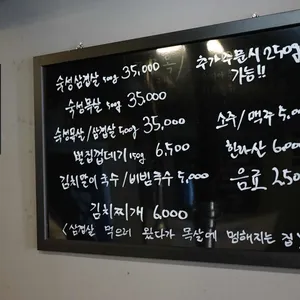 숙성삼겹살 500g 35,000
숙성목살 500g 35,000
숙성목살/삼겹살 500g 35,000
벌집껍데기 150g 6,500
김치말이국수/비빔국수 5,000
김치찌개 6,000
추가주문시 250g
가능!!
소주/맥주 5,0
한라산 6,00
음료 2,50
<삼겹살 먹으러 왔다가 목살에 멈해지는 집